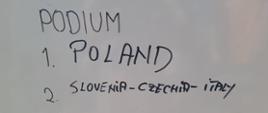 PODIUM
1. POLAND
2. SLOVENIA-CZECHIA-ITALY